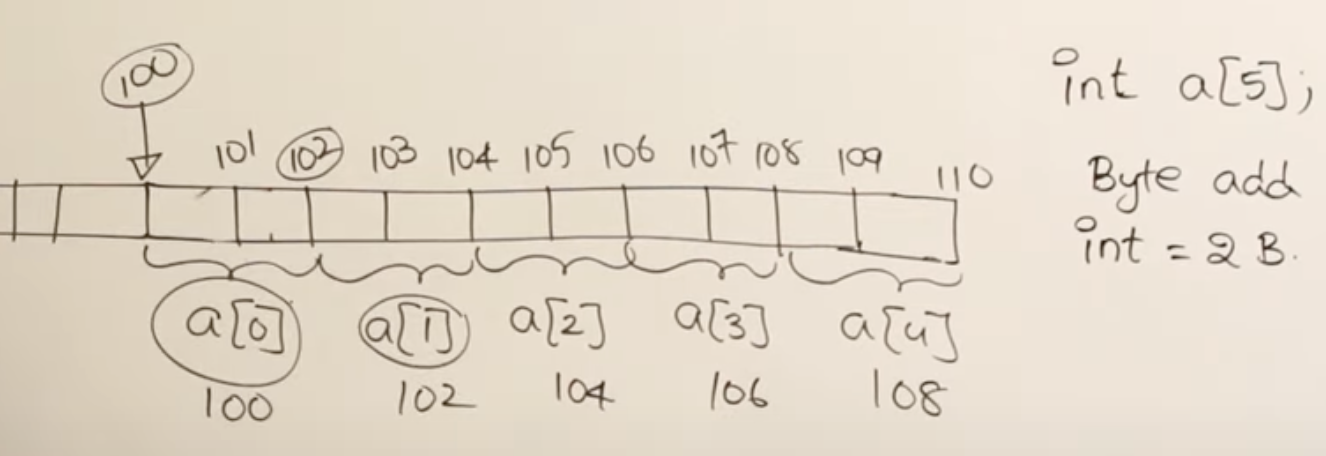 100
101 102 103 104 105 106 107 108 109 110
a[0] a[1] a[2] a[3] a[4]
100 102 104 106 108
int a[5];
Byte add
int = 2 B.